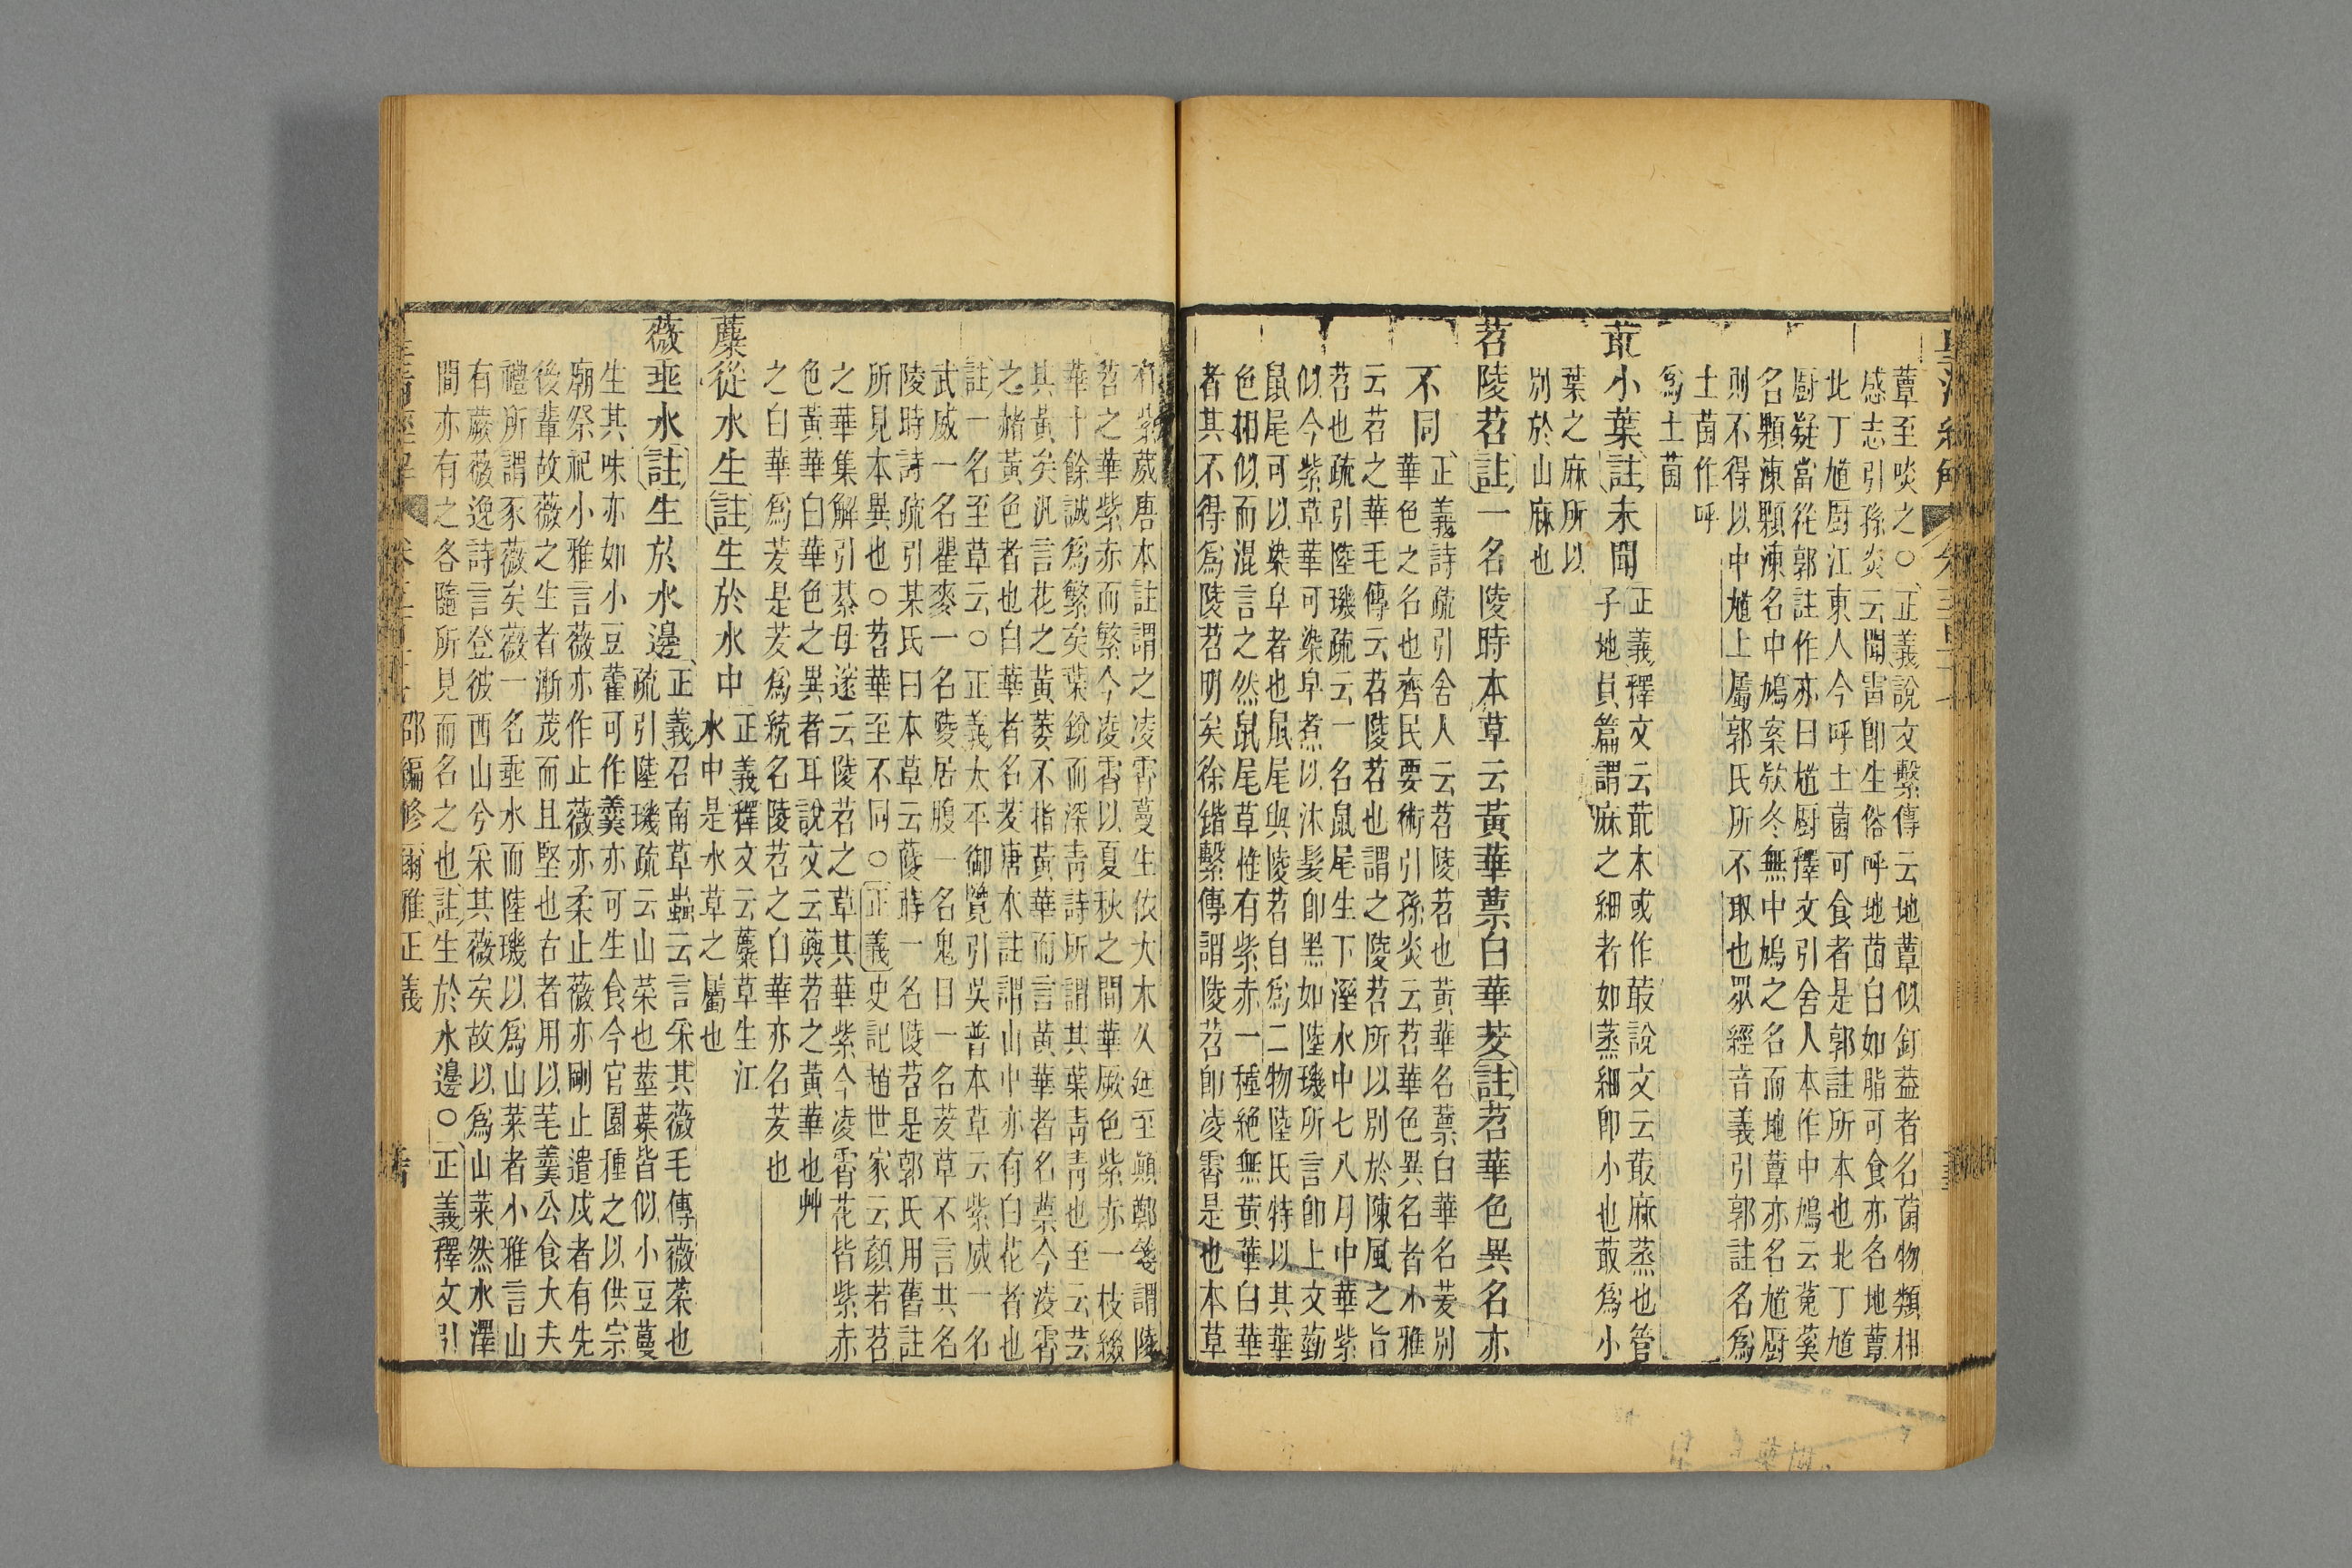 蕈至啖之○正義說文繫傳云地蕈似釘葢者名菌物類相
感志引孫炎云聞雷卽生俗呼地菌白如脂可食亦名地蕈
北丁馗厨江東人今呼土菌可食者是郭註所本也北丁馗
厨疑當從郭註作亦曰馗厨釋文引舍人本作中鳩云菟葵
名顆涷顆涷名中鳩案欵冬無中鳩之名而地蕈亦名馗厨
則不得以中馗上屬郭氏所不取也眾經音義引郭註名爲
土菌作呼
爲土菌
菆小葉註未聞
正義釋文云菆本或作菆說文云菆麻蒸也管
子地員篇謂麻之細者如蒸細卽小也菆爲小
葉之麻所以
別於山麻也
苕陵苕註一名陵時本草云黃華蔈白華茇註苕華色異名亦
不同
正義詩疏引舍人云苕陵苕也黃華名蔈白華名茇別
華色之名也齊民要術引孫炎云苕華色異名者小雅
云苕之華毛傳云苕陵苕也謂之陵苕所以別於陳風之旨
苕也疏引陸璣疏云一名鼠尾生下溼水中七八月中華紫
似今紫草華可染皁煮以沐髮卽黑如陸璣所言卽上文葝
鼠尾可以染皁者也鼠尾與陵苕自爲二物陸氏特以其華
色相似而混言之然鼠尾草惟有紫赤一種絶無黃華白華
者其不得爲陵苕明矣徐鍇繫傳謂陵苕卽凌霄是也本草
有紫葳唐本註謂之凌霄蔓生依大木久延至顛鄭箋謂陵
苕之華紫赤而繁今凌霄以夏秋之間華厥色紫赤一枝綴
華十餘誠爲繁矣葉銳而深青詩所謂其葉青青也至云芸
其黃矣汎言花之黃萎不指黃華而言黃華者名蔈今凌霄
之赭黃色者也白華者名茇唐本註謂山中亦有白花者也
註一名至草云○正義太平御覽引吳普本草云紫葳一名
武威一名瞿麥一名陵居腹一名鬼目一名茇草不言其名
陵時詩疏引某氏曰本草云陵蒔一名陵苕是郭氏用舊註
所見本異也○苕華至不同○正義史記趙世家云顔若苕
之華集解引綦毋邃云陵苕之草其華紫今凌霄花皆紫赤
色黃華白華色之異者耳說文云蔈苕之黃華也艸
之白華爲茇是茇爲統名陵苕之白華亦名茇也
蘪從水生註生於水中
正義釋文云蘪草生江
水中是水草之屬也
薇垂水註生於水邊
正義召南草蟲云言采其薇毛傳薇菜也
疏引陸璣疏云山菜也莖葉皆似小豆蔓
生其味亦如小豆藿可作羹亦可生食今官園種之以供宗
廟祭祀小雅言薇亦作止薇亦柔止薇亦剛止遣戍者有先
後輩故薇之生者漸茂而且堅也古者用以芼羹公食大夫
禮所謂豕薇矣薇一名垂水而陸璣以爲山菜者小雅言山
有蕨薇逸詩言登彼西山兮采其薇矣故以爲山菜然水澤
間亦有之各隨所見而名之也註生於水邊○正義釋文引
邵編修爾雅正義